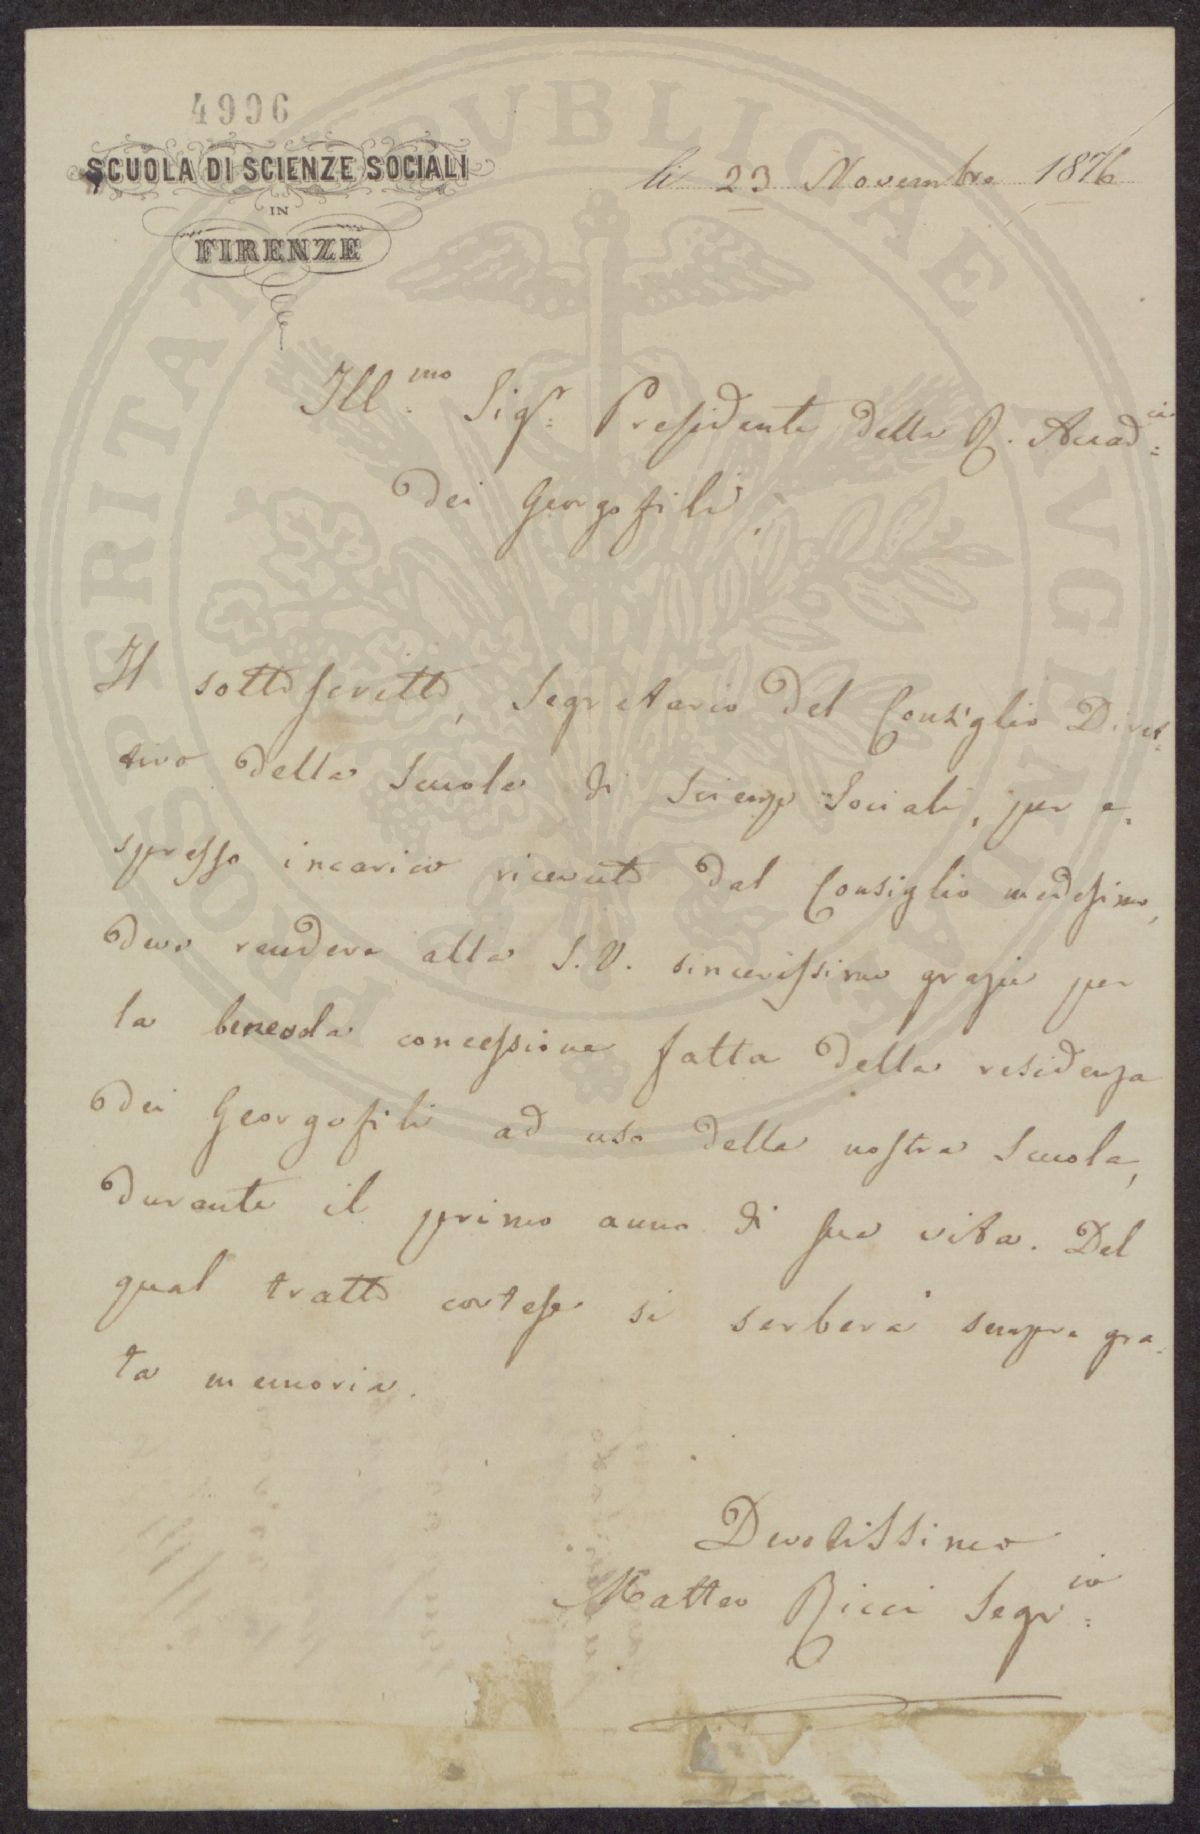 4996
SCUOLA DI SCIENZE SOCIALI
IN
FIRENZE
li 23 Novembre 1876
Ill.mo Sigr. Presidente della R. Accad.ia
dei Georgofili.
Il sottoscritto, Segretario del Consiglio Diret-
tivo della Scuola di Scienze Sociali, per e-
spresso incarico ricevuto dal Consiglio medesimo,
deve rendere alla S. V. sincerissime grazie per
la benevola concessione fatta della residenza
dei Georgofili ad uso della nostra Scuola,
durante il primo anno di sua vita. Del
qual tratto cortese si serberà sempre gra-
ta memoria.
Devotissimo
Matteo Ricci Segr.io
PROSPERITATI PUBLICAE AUGENDAE